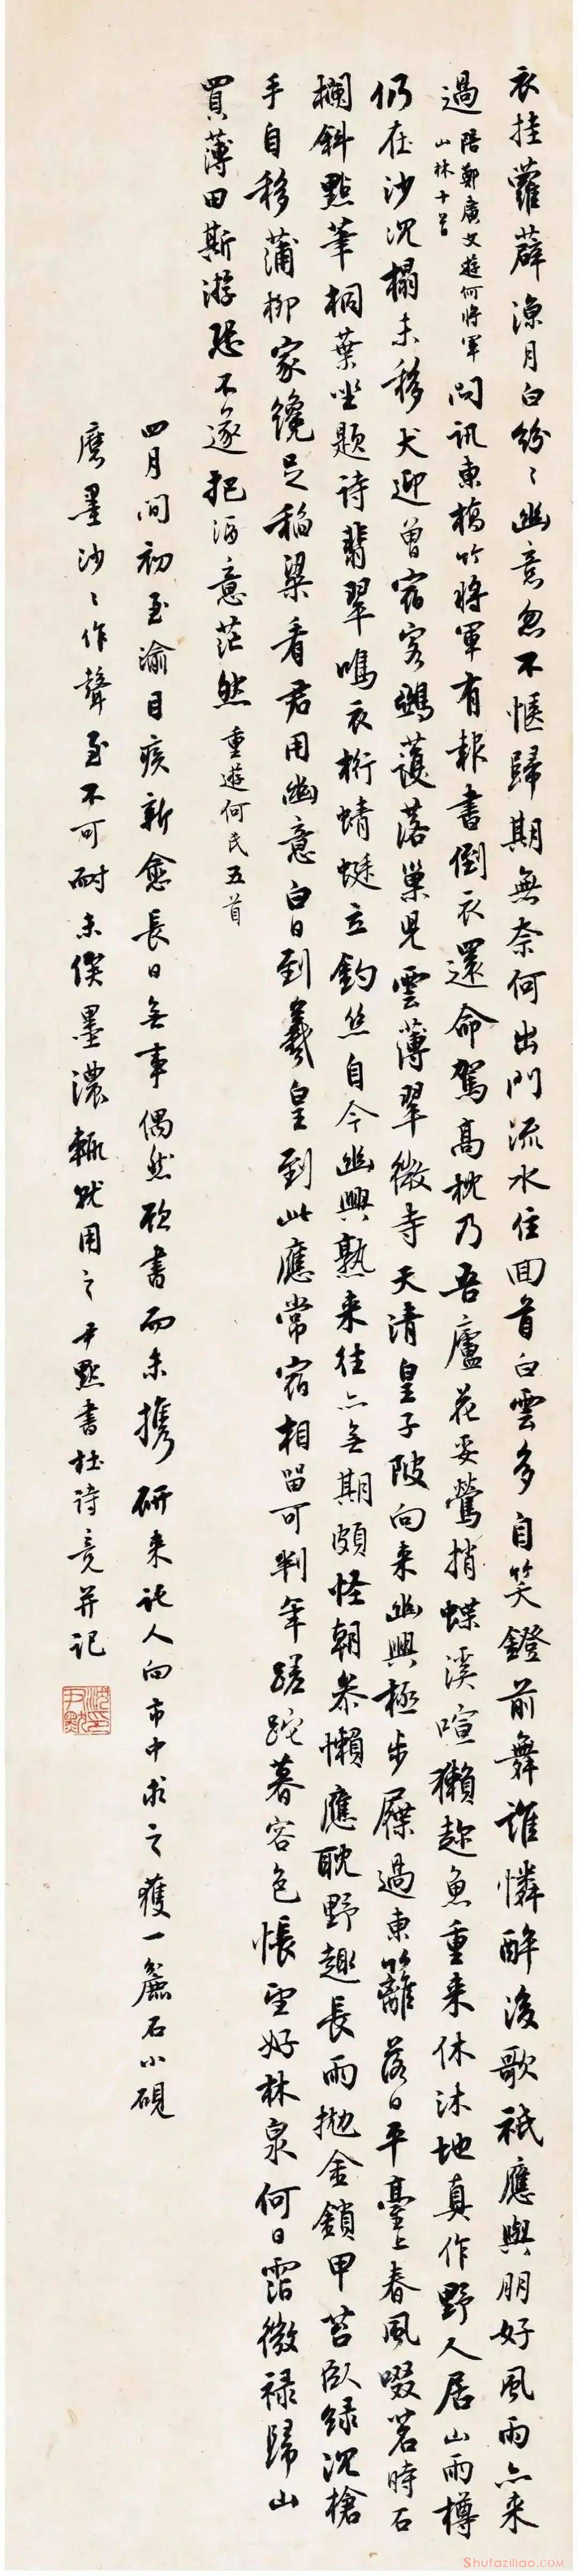 衣挂蘿薜涼月白紛〻幽意忽不愜歸期無奈何出門流水住回首白雲多自笑鐙前舞誰憐醉後歌祇應與朋好風雨亦来
過陪鄭廣文遊何將軍山林十首問訊東橋竹將軍有報書倒衣還命駕高枕乃吾廬花妥鶯捎蝶溪喧獺趁魚重来休沐地真作野人居山雨樽
仍在沙沉榻未移犬迎曾宿客鴉護落巢兒雲薄翠微寺天清皇子陂向来幽興極步屧過東籬落日平臺上春風啜茗時石
欄斜點筆桐葉坐題詩翡翠鳴衣桁蜻蜓立釣絲自今幽興熟来往亦無期頗怪朝參懶應耽野趣長雨拋金鎖甲苔臥綠沉槍
手自移蒲柳家纔足稻粱看君用幽意白日到羲皇到此應常宿相留可判年蹉跎暮容色悵望好林泉何日霑微祿歸山
買薄田斯游恐不遂把酒意茫然重遊何氏五首
四月間初至渝目疾新愈長日無事偶然欲書而未携研来託人向市中求之獲一麤石小硯
磨墨沙〻作聲至不可耐未俟墨濃輒就用之尹默書杜詩竟并記
沈尹默印
Shufaziliao.COM